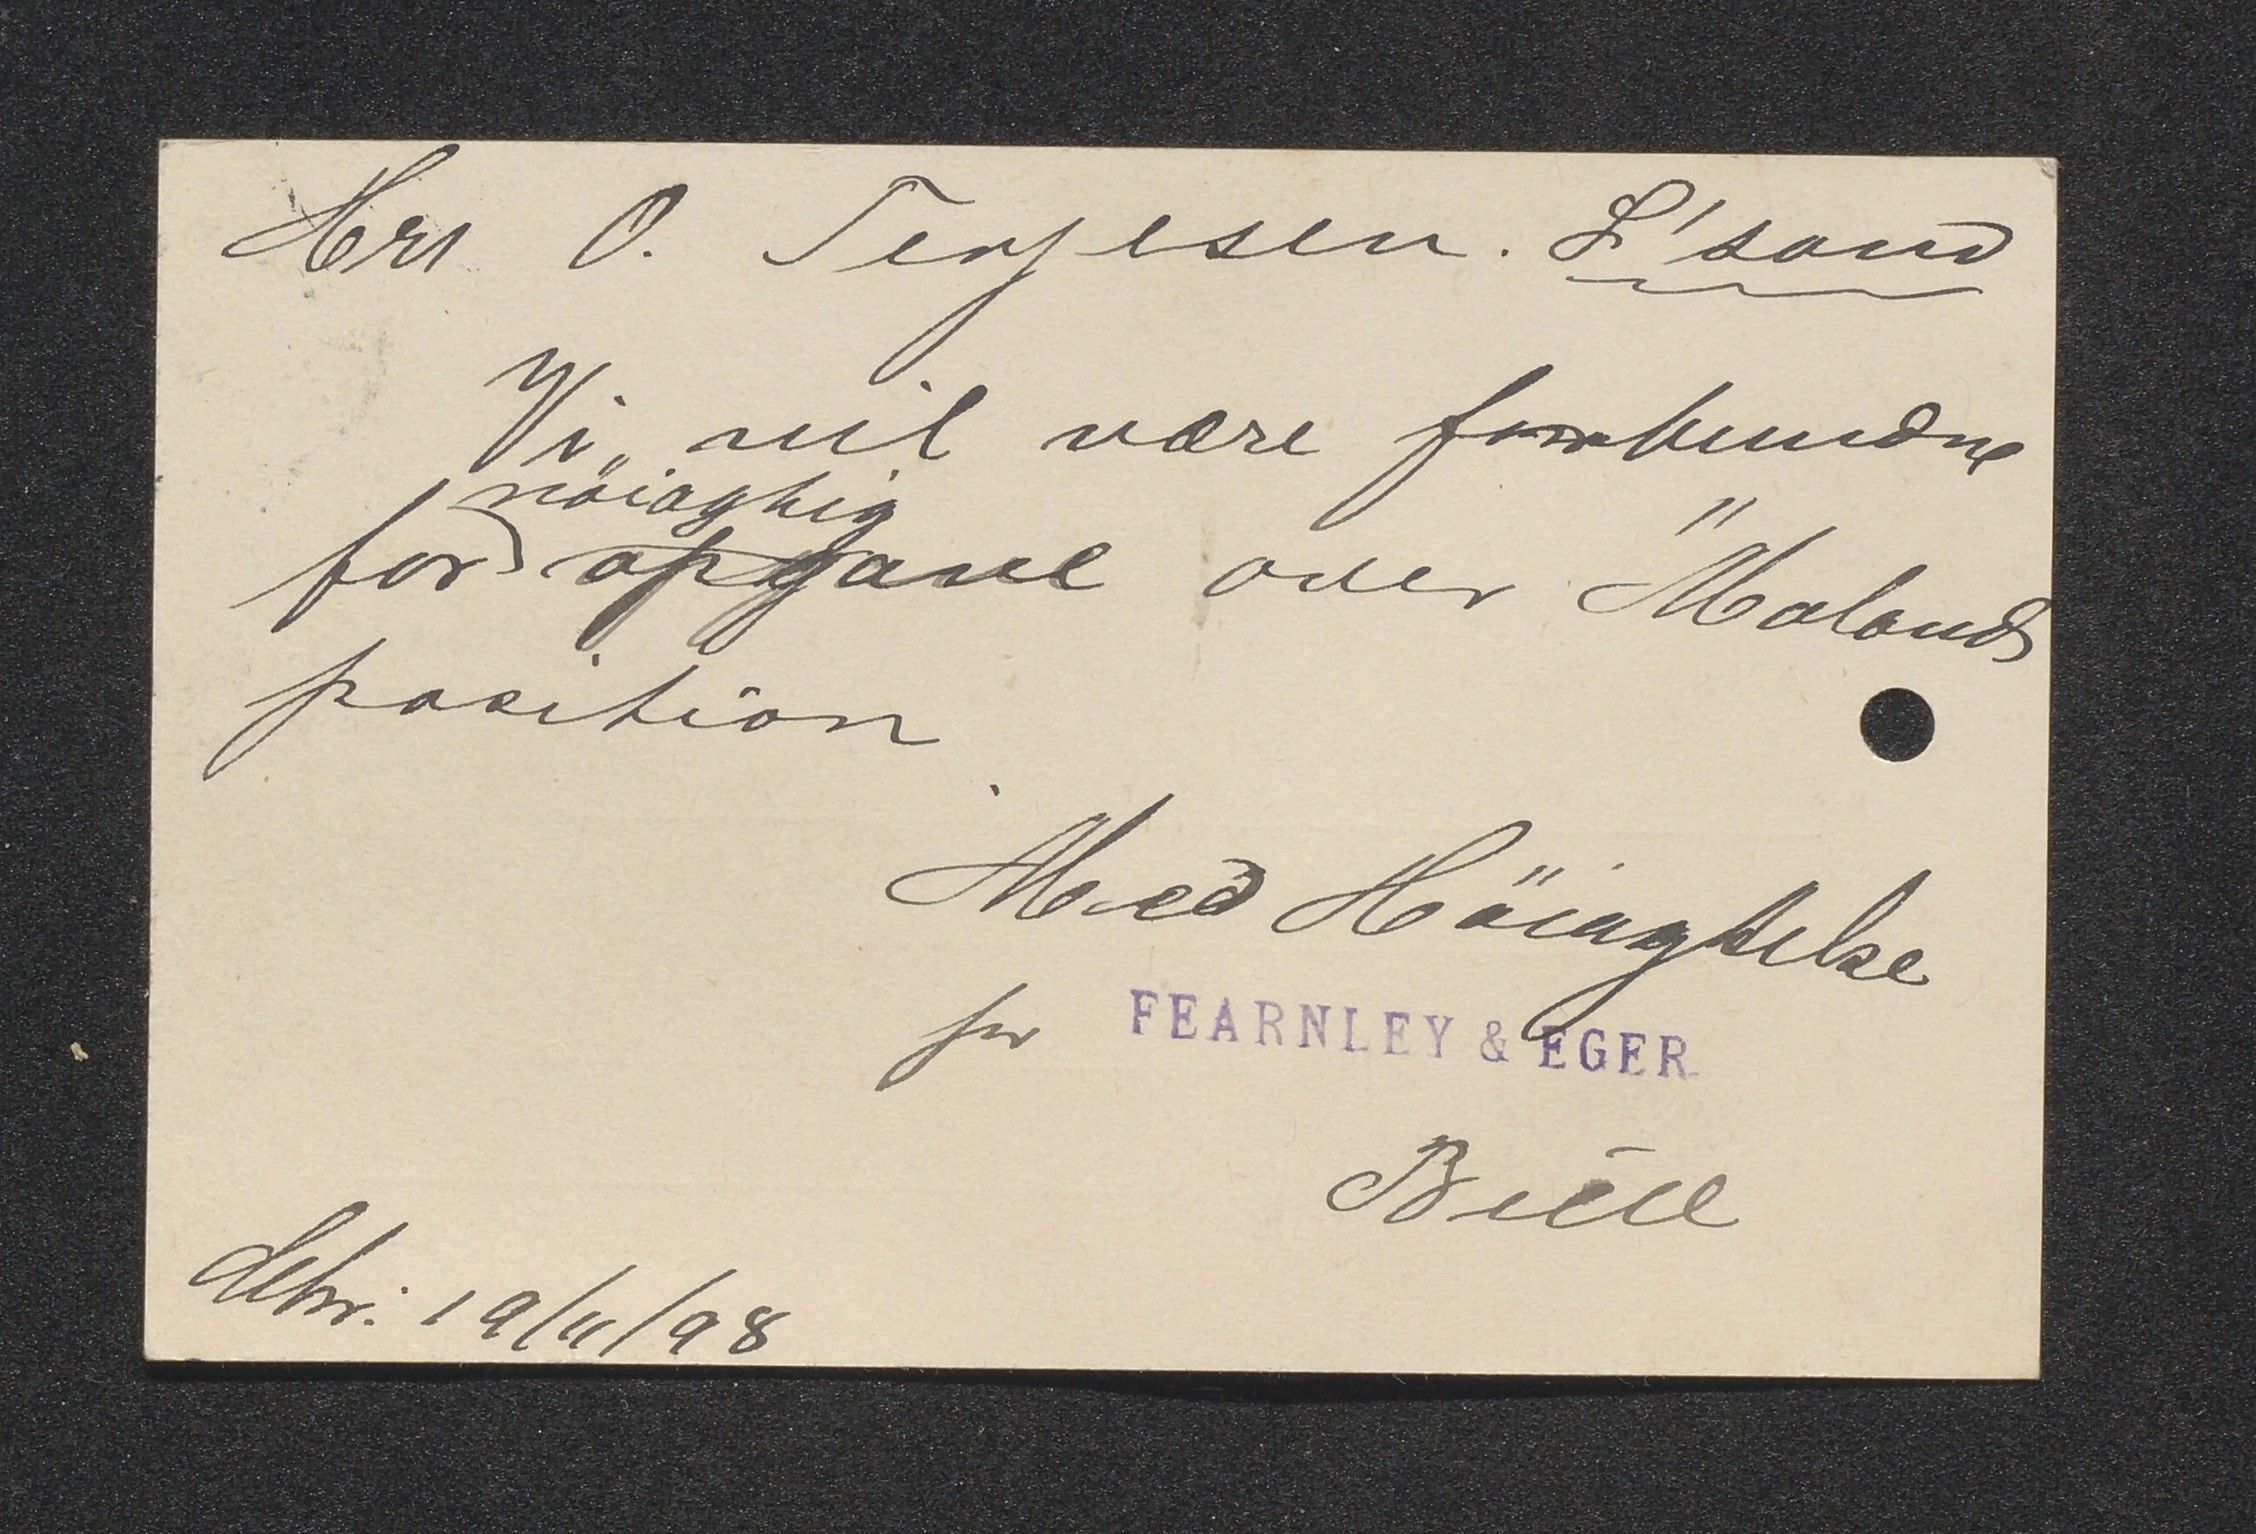 Hrs O. Terjesen. L'sand
Vi vil være forbundne
nöiagtig
for opgave over "Molands
position.
Med Höiagtelse
for FEARNLEY & EGER
19/11/98